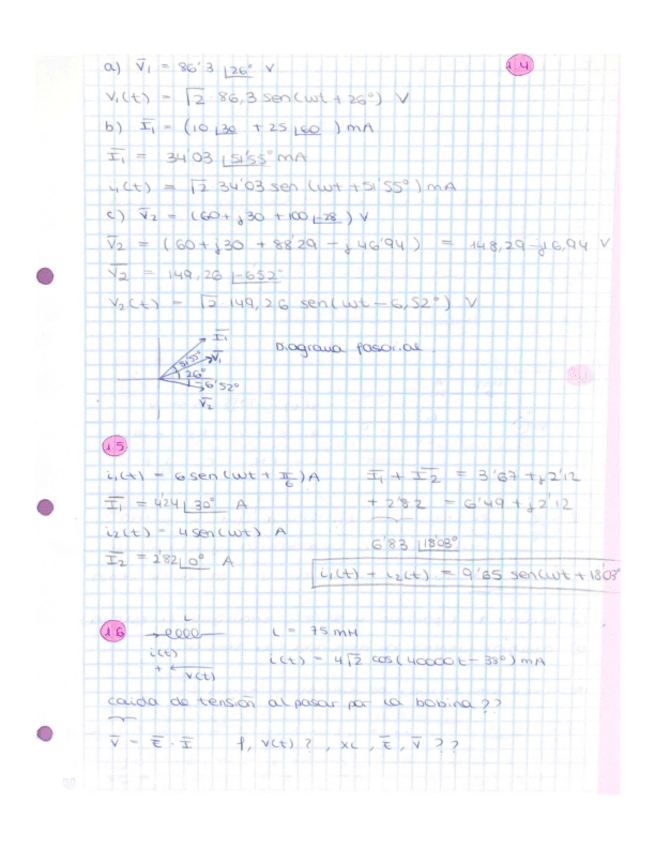 1.4
a) V̄₁ = 86'3 ∠26° V
V₁(t) = √2 86,3 sen(wt + 26°) V
b) Ī₁ = (10 ∠30 + 25 ∠60 ) mA
Ī₁ = 34'03 ∠51'55° mA
i₁(t) = √2 34'03 sen (wt + 51'55°) mA
c) V̄₂ = (60 + j30 + 100 ∠-28 ) V
V̄₂ = (60 + j30 + 88'29 - j46'94 ) = 148,29 - j16,94 V
V̄₂ = 149,26 ∠-6'52°
V₂(t) = √2 149,26 sen(wt - 6,52°) V
Ī₁
51'55°
V̄₁
26°
-6'52°
V̄₂
Diagrama fasorial
1.5
i₁(t) = 6 sen(wt + π/6) A
Ī₁ = 4'24 ∠30° A
i₂(t) = 4 sen(wt) A
Ī₂ = 2'82 ∠0° A
Ī₁ + Ī₂ = 3'67 + j2'12
+ 2'82 = 6'49 + j2'12
6'83 ∠18'03°
i₁(t) + i₂(t) = 9'65 sen(wt + 18'03°
1.6
L
i(t)
+ v(t)
L = 75 mH
i(t) = 4√2 cos(40000t - 38°) mA
caída de tensión al pasar por la bobina??
V̄ = Z̄ · Ī f, v(t)? , XL , Z̄, V̄ ??